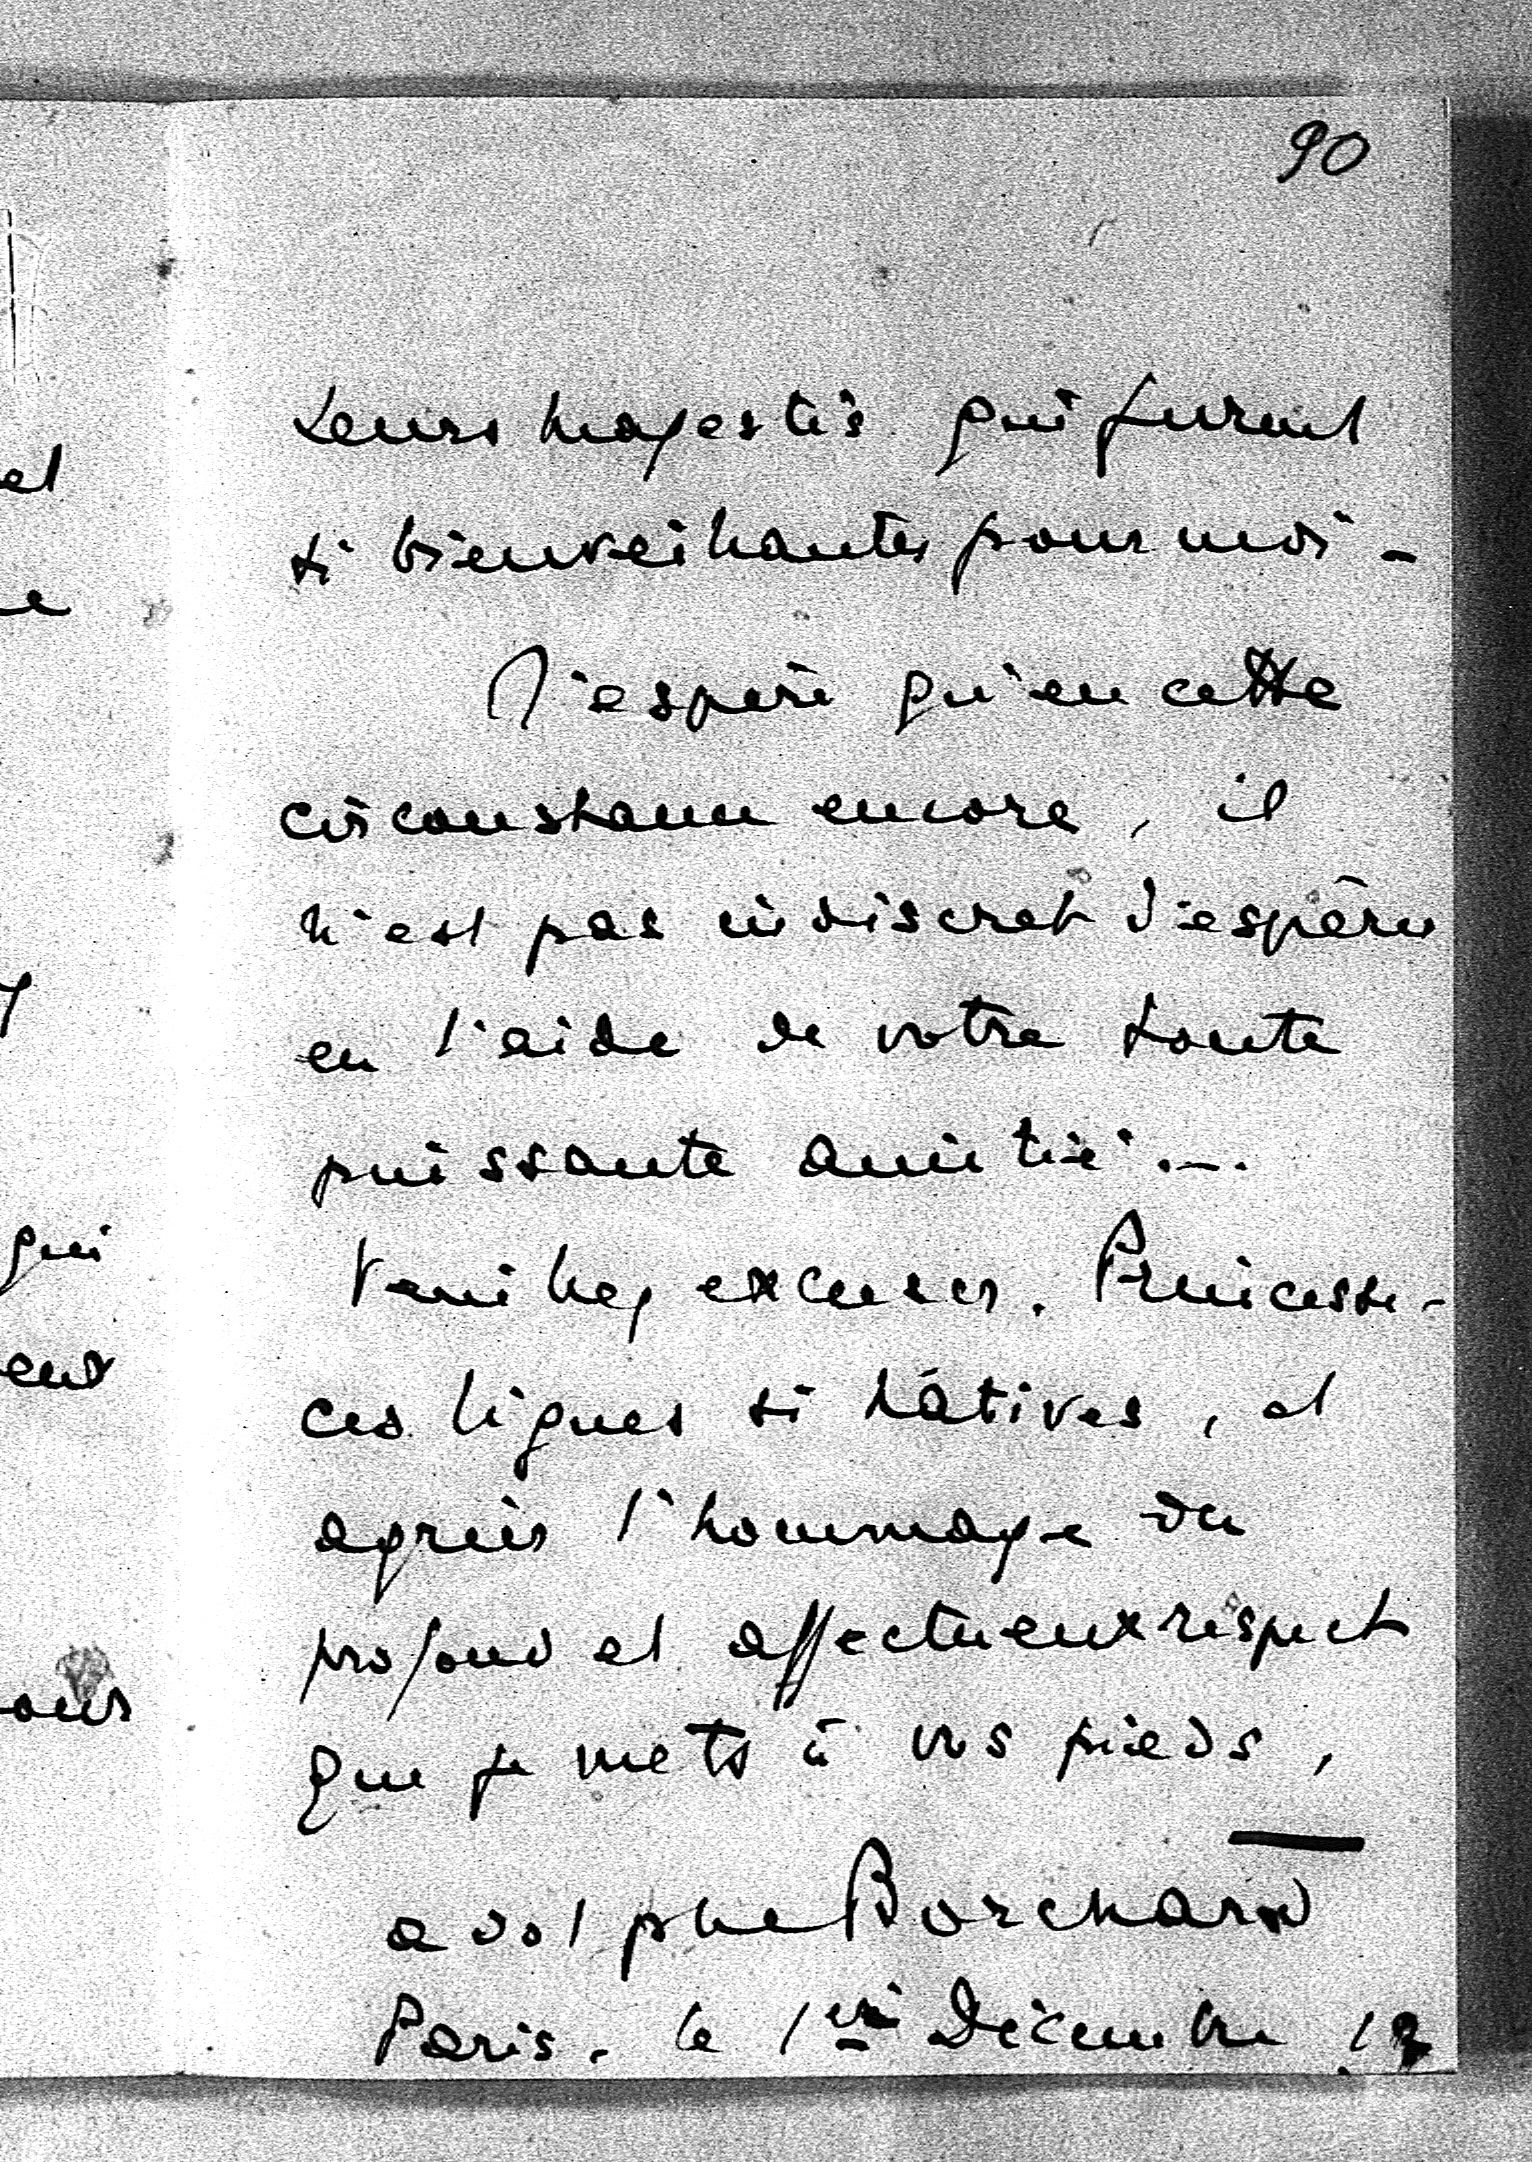 90
Leurs Majestés qui furent
si bienveillantes pour moi -
J'espère qu'en cette
circonstance encore, il
n'est pas indiscret d'espérer
en l'aide de votre toute
puissante amitié.-.
Veuillez excuser. Princesse -
ces lignes si hâtives, et
agréer l'hommage du
profond et affectueux respect
que je mets à vos pieds,
Adolphe Borchard
Paris. le 1er Décembre
el
qui